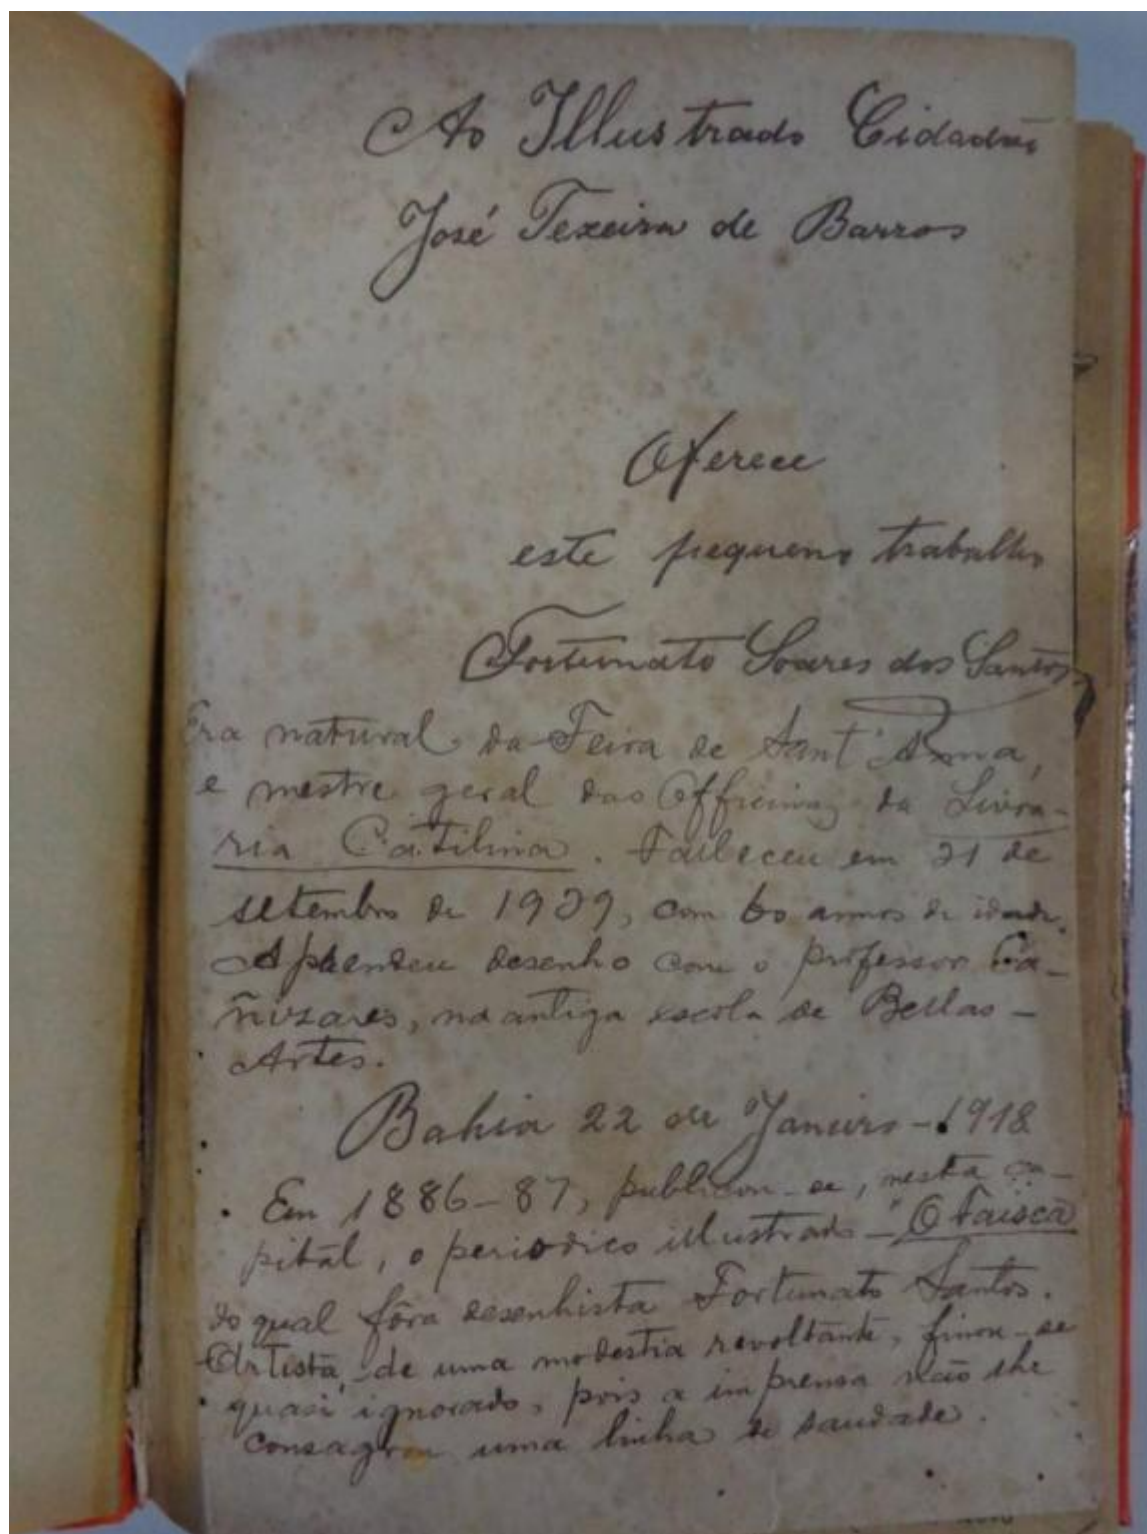 Ao Illustrado Cidadão
José Texeira de Barros
Oferece
este pequeno trabalho
Fortunato Soares dos Santos
Era natural da Feira de Sant'Anna,
e mestre geral das Officinas da Livra-
ria Catilina. Falleceu em 21 de
setembro de 1929, com 60 annos de idade.
Aprendeu desenho com o professor Ca-
ñizares, na antiga escola de Bellas-
Artes.
Bahia 22 de Janeiro - 1918
Em 1886-87, publicou-se, nesta ca-
pital, o periodico illustrado - "O Faisca
do qual fôra desenhista Fortunato Santos.
Artista, de uma modestia revoltante, finou-se
quasi ignorado, pois a imprensa não lhe
consagrou uma linha de saudade.